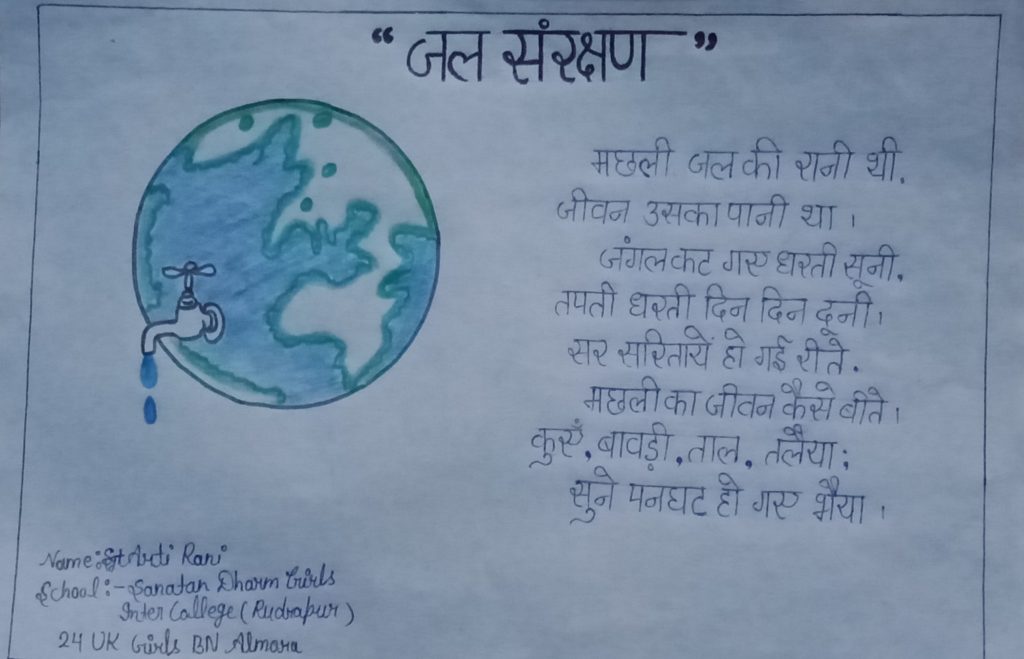 “जल संरक्षण”
मछली जल की रानी थी,
जीवन उसका पानी था।
जंगल कट गए धरती सूनी,
तपती धरती दिन दिन दूनी।
सर सरितायें हो गई रीते.
मछली का जीवन कैसे बीते।
कुएँ, बावड़ी, ताल, तलैया;
सुने पनघट हो गए भैया।
Name: Arti Rani
School:- Sanatan Dharm Girls
Inter College (Rudrapur)
24 UK Girls BN Almora